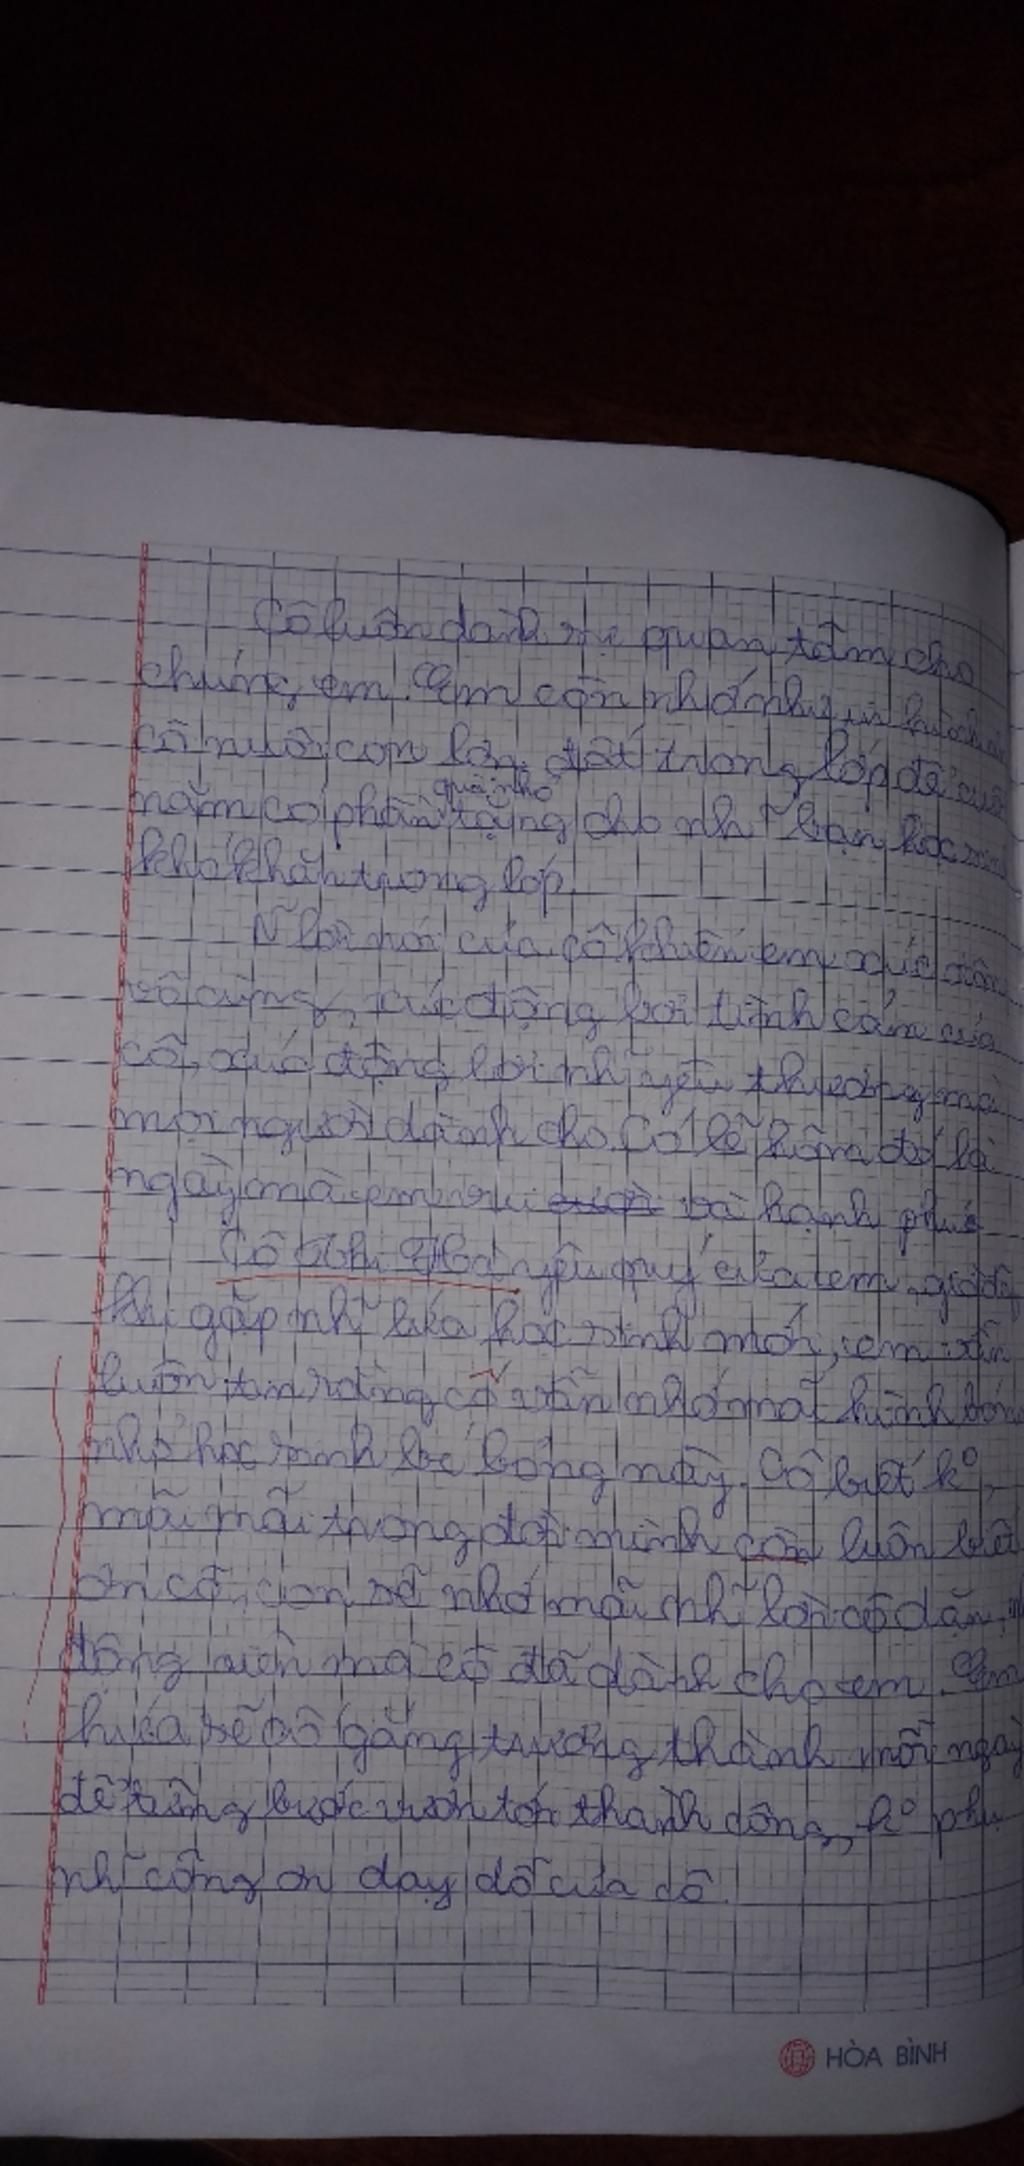 Cô luôn dành sự quan tâm cho
chúng em. Em còn nhớ như in
cô nuôi con lợn đất trong lớp để cuối
quà nhỏ
năm có phần tặng cho nh~ bạn học sinh
khó khăn trong lớp.
N~ lời nói của cô khiến em xúc động
vô cùng, xúc động bởi tình cảm của
cô, xúc động bởi nh~ yêu thương mà
mọi người dành cho. Có lẽ hôm đó là
ngày mà em vui và hạnh phúc
Cô yêu quý của em, giờ đây
khi gặp nh~ lứa học sinh mới, em vẫn
luôn tin rằng cố vẫn nhớ mãi hình bóng
nhỏ học sinh bé bỏng này. Cô biết ko,
mãi mãi trong đời mình con luôn biết
ơn cô, con sẽ nhớ mãi nh~ lời cô dặn,
động viên mà cô đã dành cho em. Em
hứa sẽ cố gắng trưởng thành mỗi ngày
để từng bước vươn tới thành công, ko phụ
nh~ công ơn dạy dỗ của cô.
HÒA BÌNH